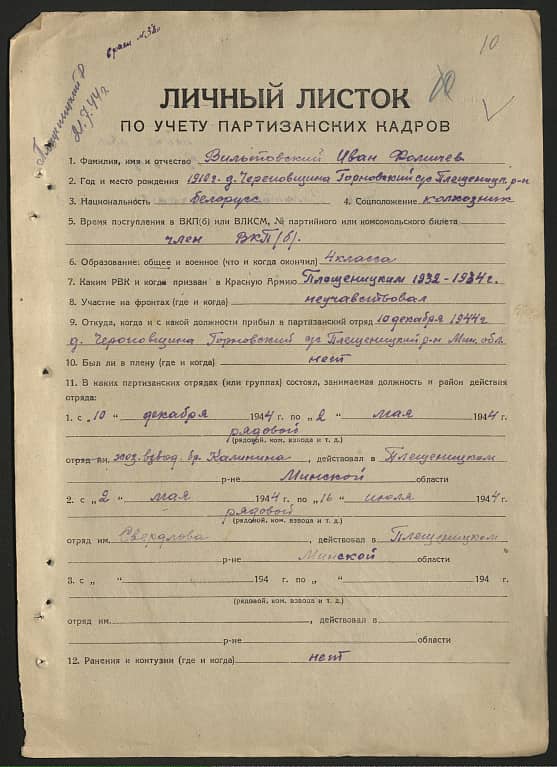 врач
10
Плещеницкий р
21.7.44 г
ЛИЧНЫЙ ЛИСТОК
ПО УЧЕТУ ПАРТИЗАНСКИХ КАДРОВ
1. Фамилия, имя и отчество Вильтовский Иван Фомичев
2. Год и место рождения 1910 г. д. Черновщина Горновский с/с Плещениц. р-н
3. Национальность белорусс 4. Соцположение колхозник
5. Время поступления в ВКП(б) или ВЛКСМ, № партийного или комсомольского билета
член ВКП(б).
6. Образование: общее и военное (что и когда окончил) 4 класса
7. Каким РВК и когда призван в Красную Армию Плещеницким 1932-1934 г.
8. Участие на фронтах (где и когда) неучавствовал
9. Откуда, когда и с какой должности прибыл в партизанский отряд 10 декабря 1944 г
д. Горновский с/с Плещеницкий р-н Мин. обл.
10. Был ли в плену (где и когда) нет
11. В каких партизанских отрядах (или группах) состоял, занимаемая должность и район действия
отряда:
1. с „10 “ декабря 1944 г. по „2 “ мая 1944 г.
рядовой
(рядовой, ком. взвода и т. д.)
отряд им. хоз. взвод. бр. Калинина, действовал в Плещеницком
р-не Минской области
2. с „2 “ мая 1944 г. по „16 “ июля 1944 г.
рядовой
(рядовой, ком. взвода и т. д.)
отряд им. Свердлова, действовал в Плещеницком
р-не Минской области
3. с „ “ 194 г. по „ “ 194 г.
(рядовой, ком. взвода и т. д.)
отряд им. , действовал в
р-не области
12. Ранения и контузии (где и когда) нет